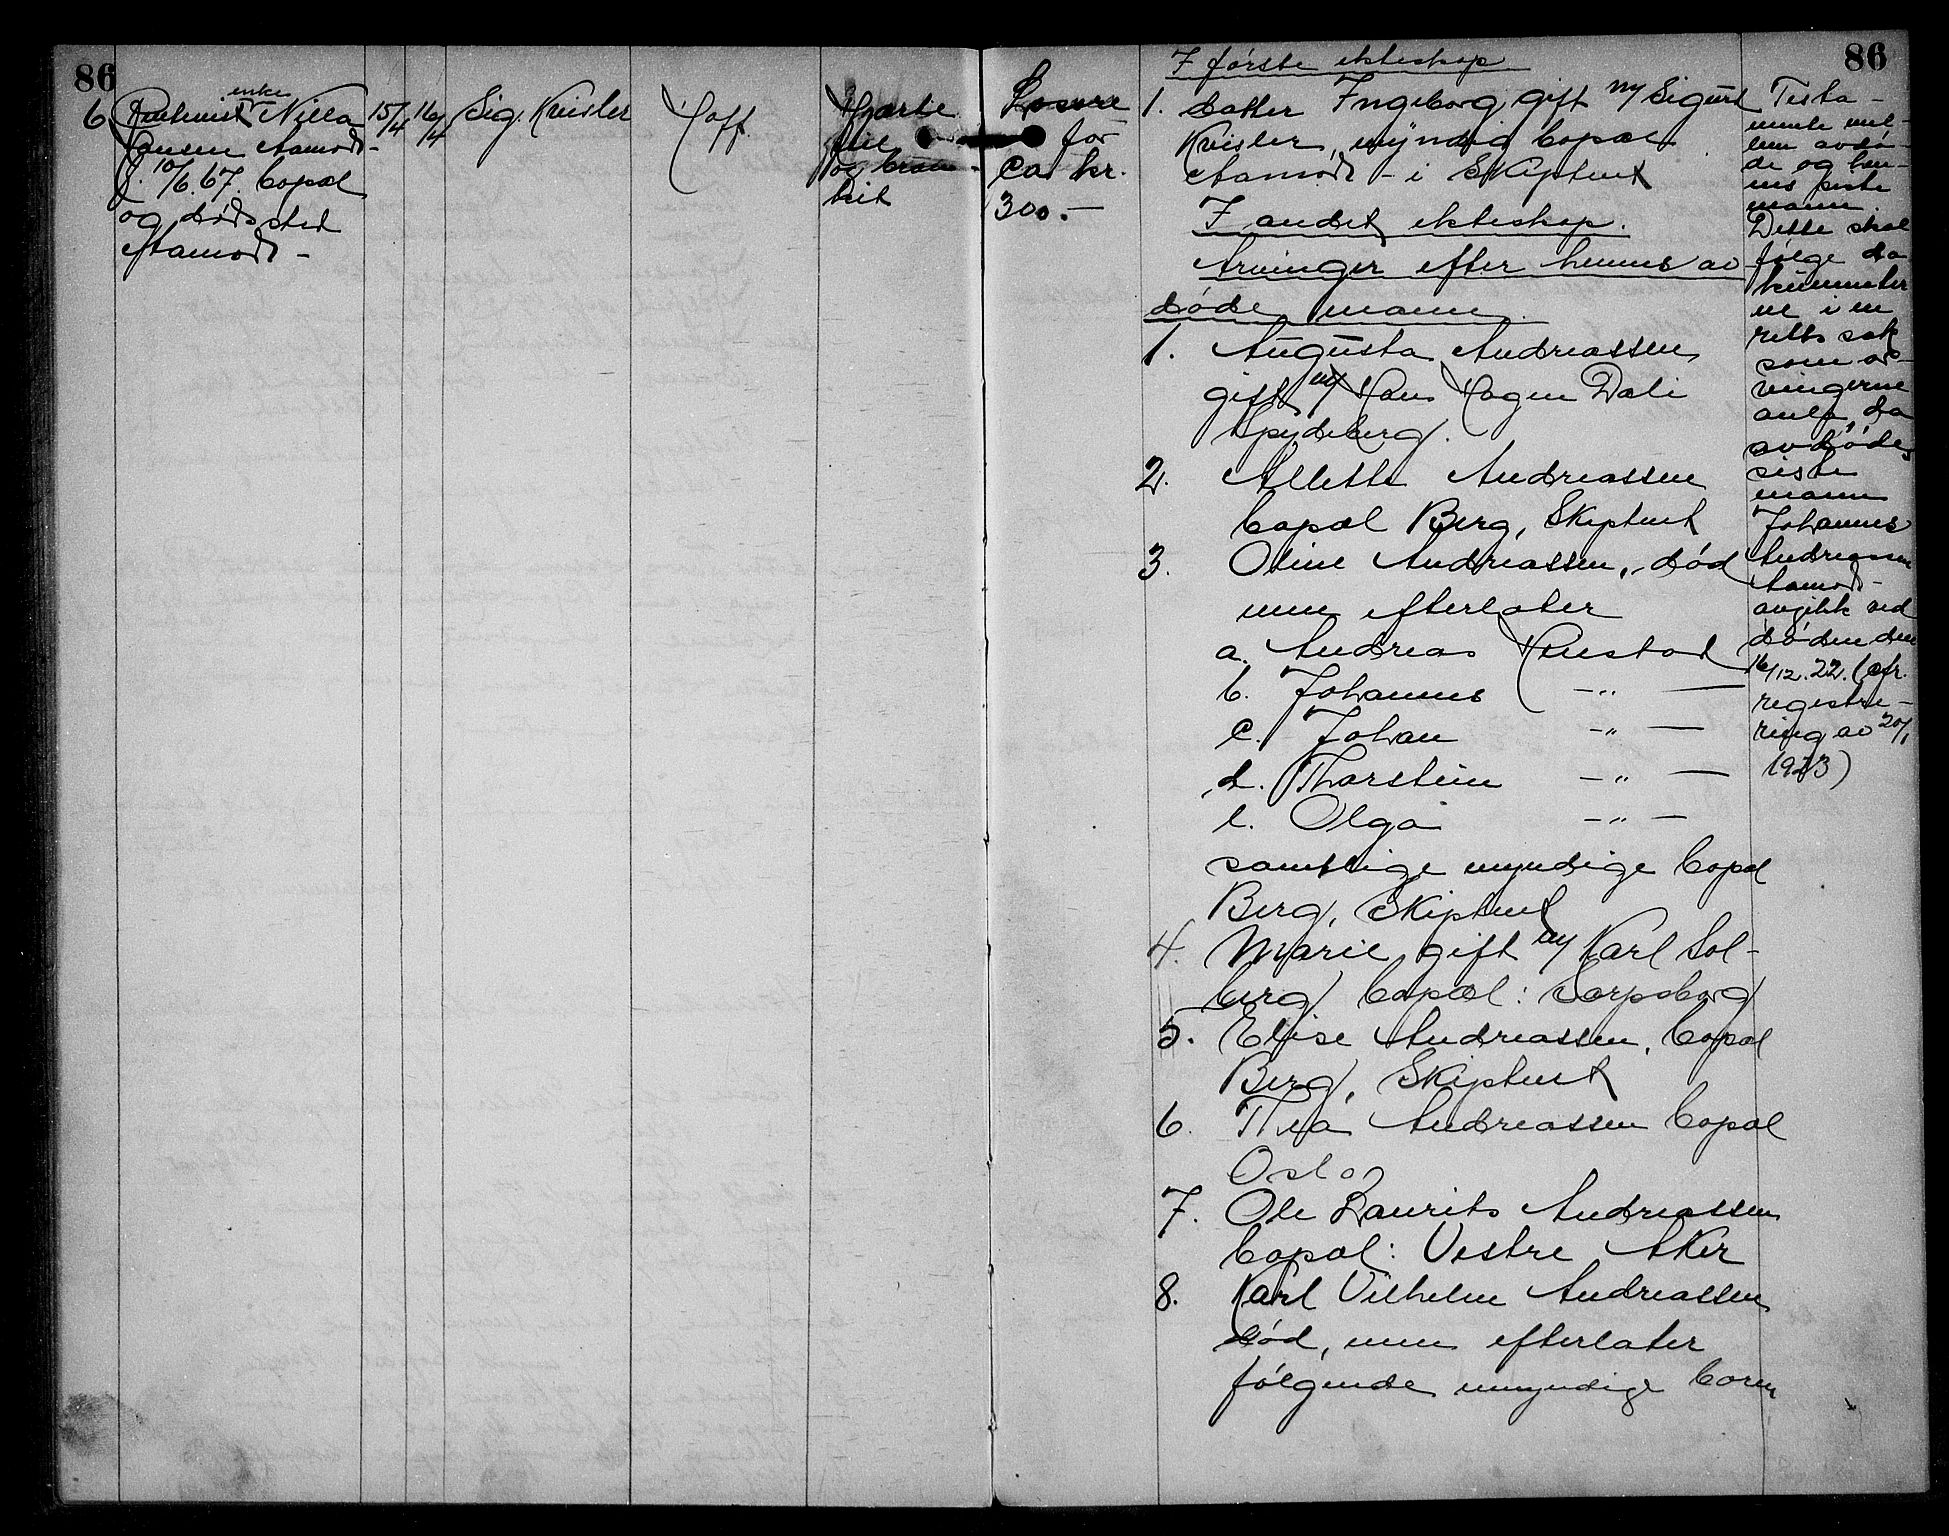 86
6
enke
Nilla
Jansen Aamodt
f. 10/6.67. bopæl
og dødssted
Aamodt -
15/4
16/4
Sig. Kvisler
Hoff
Hjærte
feil
og bron
kit
Løsøre
for
ca kr.
300.-
I første ekteskap
1. datter Ingeborg gift m/ Sigurd
Kvisler, myndig bopæl
Aamodt - i Skiptvet
I andet ekteskap.
Arvinger efter hennes av
døde mann.
1. Augusta Andreassen
gift m/ Hans Hagen Dali
Spydeberg.
2. Alette Andreassen
bopæl Berg, Skiptvet
3. Oline Andreassen, død
men efterlater
a. Andreas
b. Johannes -"-
c. Johan -"-
d. Thorstein -"-
e. Olga -"-
samtlige myndige bopæl
Berg, Skiptvet
4. Marie gift m/ Karl Sol-
berg bopæl: Sarpsborg
5. Elise Andreassen, bopæl
Berg, Skiptvet
6. Thea Andreassen bopæl
Oslo
7. Ole Laurits Andreassen
bopæl: Vestre Aker
8. Karl Vilhelm Andreassen
død, men efterlater
følgende umyndige barn
86
Testa-
mente mel-
lem avdø-
de og hen-
nes første
mann.
Dette skal
følge do
kumenter
ne i en
retts sak
som ar-
vingerne
anla, da
avdødes
siste
mann
Johannes
Andreassen
Aamodt
avgikk ved
døden den
16/12.22. (cfr.
registre-
ring av 20/1
1923)